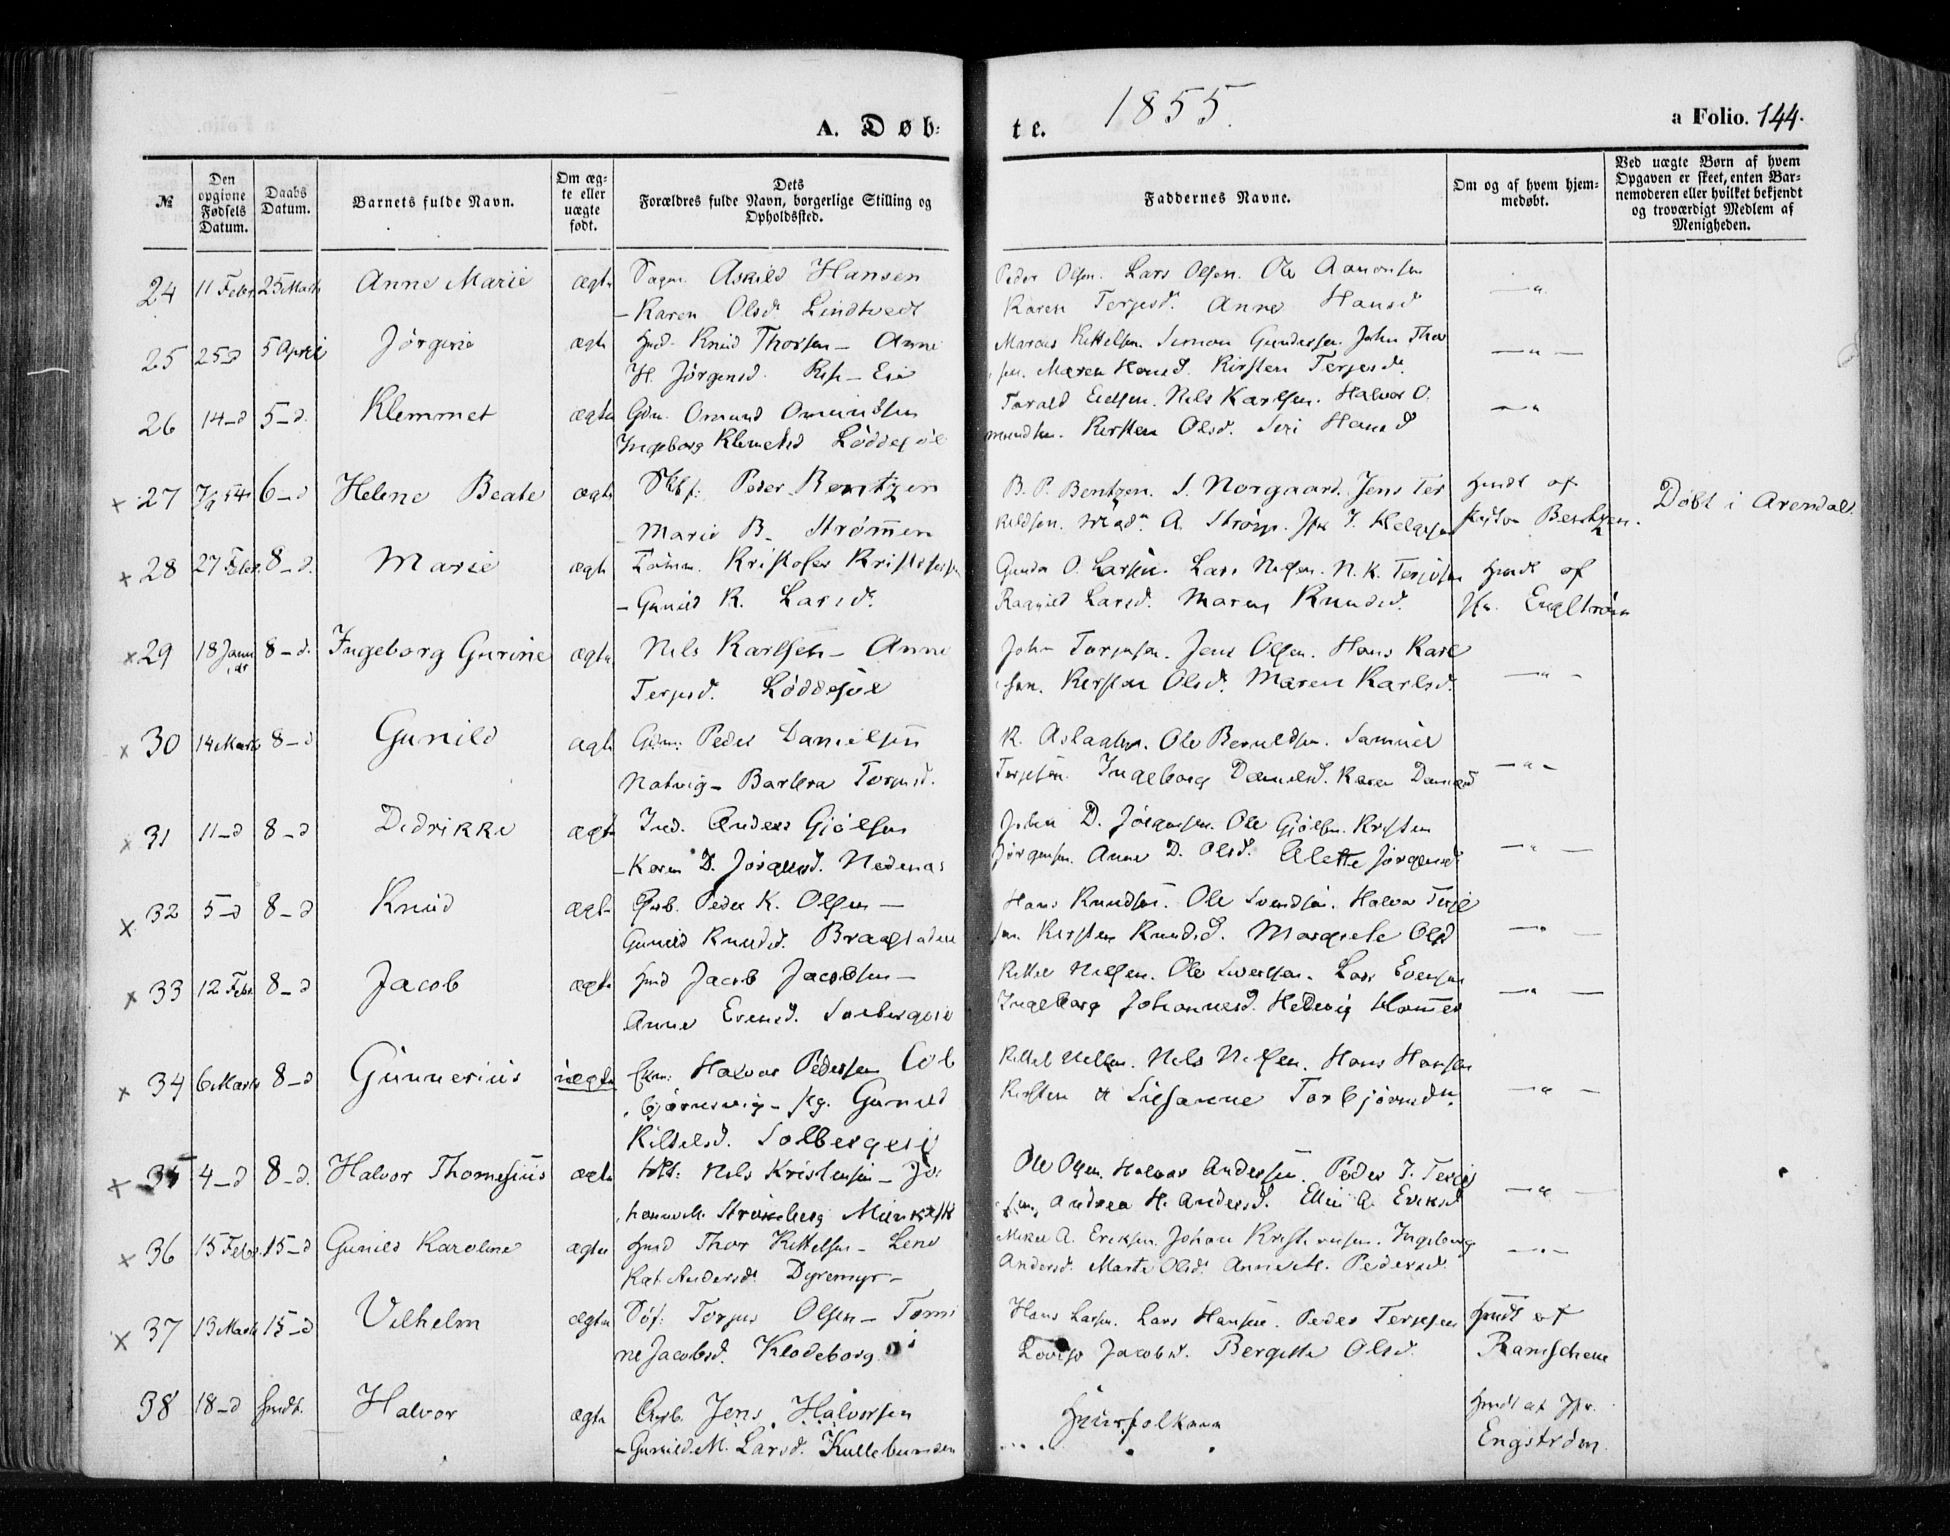 A. Døb:
te.
1855.
a Folio. 144.
№
Den opgivne Fødsels Datum.
Daabs Datum.
Barnets fulde Navn.
Om æg-te eller uægte født.
Dets Forældres fulde Navn, borgerlige Stilling og Opholdssted.
Faddernes Navne.
Om og af hvem hjem-medøbt.
Ved uægte Børn af hvem Opgaven er skeet, enten Bar-nemoderen eller hvilket bekjendt og troværdigt Medlem af Menigheden.
24 11 Febr. 25 Marts Anne Marie ægte Askild Hansen
Karen Olsd. Lindtvedt
Peder Olsen. Lars Olsen. Ole Aanonsen
Karen Terjesd. Anne Hansd
25 25 d 5 April Jørgine ægte Knud Thorsen – Anne
H. Jørgensd.
Marcus Kittelsen. Simon Gundersen. John Thor
sen. Maren Hansd. Kirsten Terjesd.
26 14 – d 5 – d. Klemmet ægte Gdm. Omund Omundsen
Ingeborg Klemetsd Løddesøl
Nils Karlsen. Halvor O.
mundsen. Kirsten Olsd. Siri Hansd
27 6 – d Helene Beate ægte Peder Bentzen
Marie B. Strømmen
B. P. Bentzen. S. Norgaard. Jens Ter
keldsen.
Hmdt af
Bentzen.
Døbt i Arendal.
28 27 Febr. 8 – d. Marie ægte Kristofer Kristofersen
– Gunild K. Larsd.
Gunder O. Larsen. Lars Nilsen. N. K. Terjesen
Ragnild Larsd. Maren Knudsd.
Hmdt af
Engström
29 18 Janu ar 8 – d. Ingeborg Gurine ægte Nils Karlsen – Anne
Terjesd. Løddesøl
John Terjesen. Jens Olsen. Hans Karl
sen. Kirsten Olsd. Maren Karlsd.
30 14 Marts 8 – d Gunild ægte Gdm: Peder Danielsen
Natvig – Barbra Torjusd.
K. Aslaksen. Ole Beruldsen. Samuel
Terjesen. Ingeborg Danielsd. Karen Danielsd
31 11 – d 8 – d Didrikke ægte Ind. Anders Gjølsen
– Karen D. Jørgensd. Nedenæs
John D. Jørgensen. Ole Gjølsen. Kristen
Jørgensen. Anne D. Olsd. Alette Jørgensd
32 5 – d 8 – d Knud ægte Peder K. Olsen –
Gunild Knudsd. Bragstadeie
Hans Knudsen. Ole Svendsen. Halvor Terje
sen. Kirsten Knudsd. Margrete Olsd
33 12 Febr. 8 – d Jacob ægte Hmd Jacob Jacobsen –
Anne Evensd. Solbergeie
Kittel Nilsen. Ole Sivertsen. Lars Evensen
Ingeborg Johannesd. Hedevig Hammer
34 6 Marts 8 – d Gunnerius uægte Halvor Pedersen Col
bjørnsvig – Gunild
Kittelsd. Solbergeie
Kittel Nilsen. Nils Nilsen. Hans Hansen
Kirsten & Susanne Torbjørnsd.
35 4 – d 8 – d. Halvor Thomesius ægte Nils Kristensen – Jo
hanne M. Strømberg
Ole Olsen. Halvor Andersen. Peder J. Terje
sen, Andrea H. Andersd. Ellen A. Eriksd
36 15 Febr. 15 – d Gunild Karoline ægte Hmd Thor Kittelsen – Lene
Kat. Andersd. Dyremyr –
Mikel A. Eriksen. Johan Kristensen. Ingeborg
Andersd. Marte Olsd. Anne M. Pedersd.
37 13 Marts 15 – d Vilhelm ægte Torjus Olsen – Tomi
ne Jacobsd. Klodeborg
Hans Larsen. Lars Hansen. Peder Terjesen
Lovise Jacobsd. Bergitte Olsd.
Hmdt af
38 18 – d hmdt. Halvor ægte Jens Halvorsen
– Gunild M. Larsd. Kullebunden
Huusfolkene
Hmdt af Jfr.
Engström.